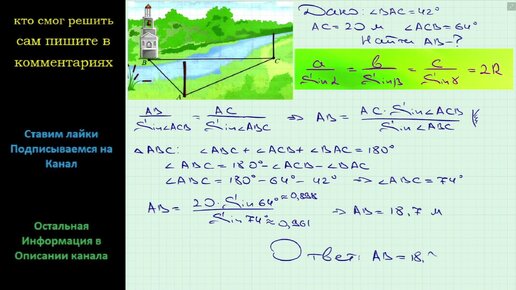 кто смог решить
сам пишите в
комментариях
Ставим лайки
Подписываемся на
Канал
Остальная
Информация в
Описании канала
B
C
A
Дано: ∠BAC=42°
AC=20 м ∠ACB=64°
Найти AB-?
a/Sinα = b/Sinβ = c/Sinγ = 2R
AB/Sin∠ACB = AC/Sin∠ABC ⇒ AB= AC·Sin∠ACB/Sin∠ABC
△ABC: ∠ABC+∠ACB+∠BAC=180°
∠ABC=180°-∠ACB-∠BAC
∠ABC=180°-64°-42° ⇒ ∠ABC=74°
AB= 20·Sin64°≈0,898/Sin74°≈0,961 ⇒ AB=18,7 м
Ответ: AB=18,